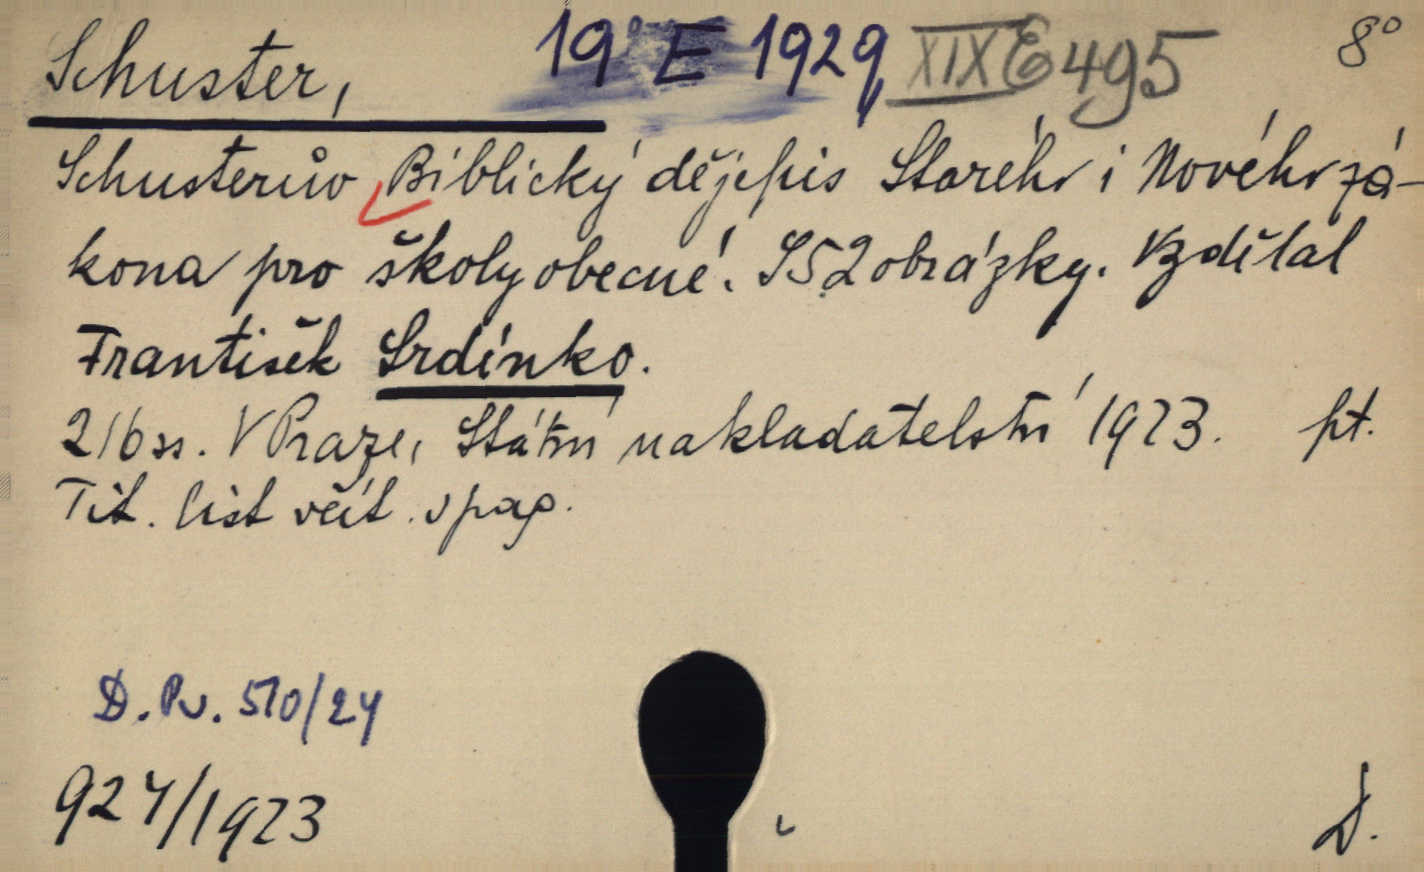 Schuster, 19 E 1929 XIX E 495 8°
Schusterův Biblický dějepis Starého i Nového zá-
kona pro školy obecné. S 52 obrázky. Vzdělal
František Srdínko.
216 ss. V Praze, Státní nakladatelství 1923. pt.
Tit. list včít. v pag.
D. Pv. 510/24
924/1923
D.